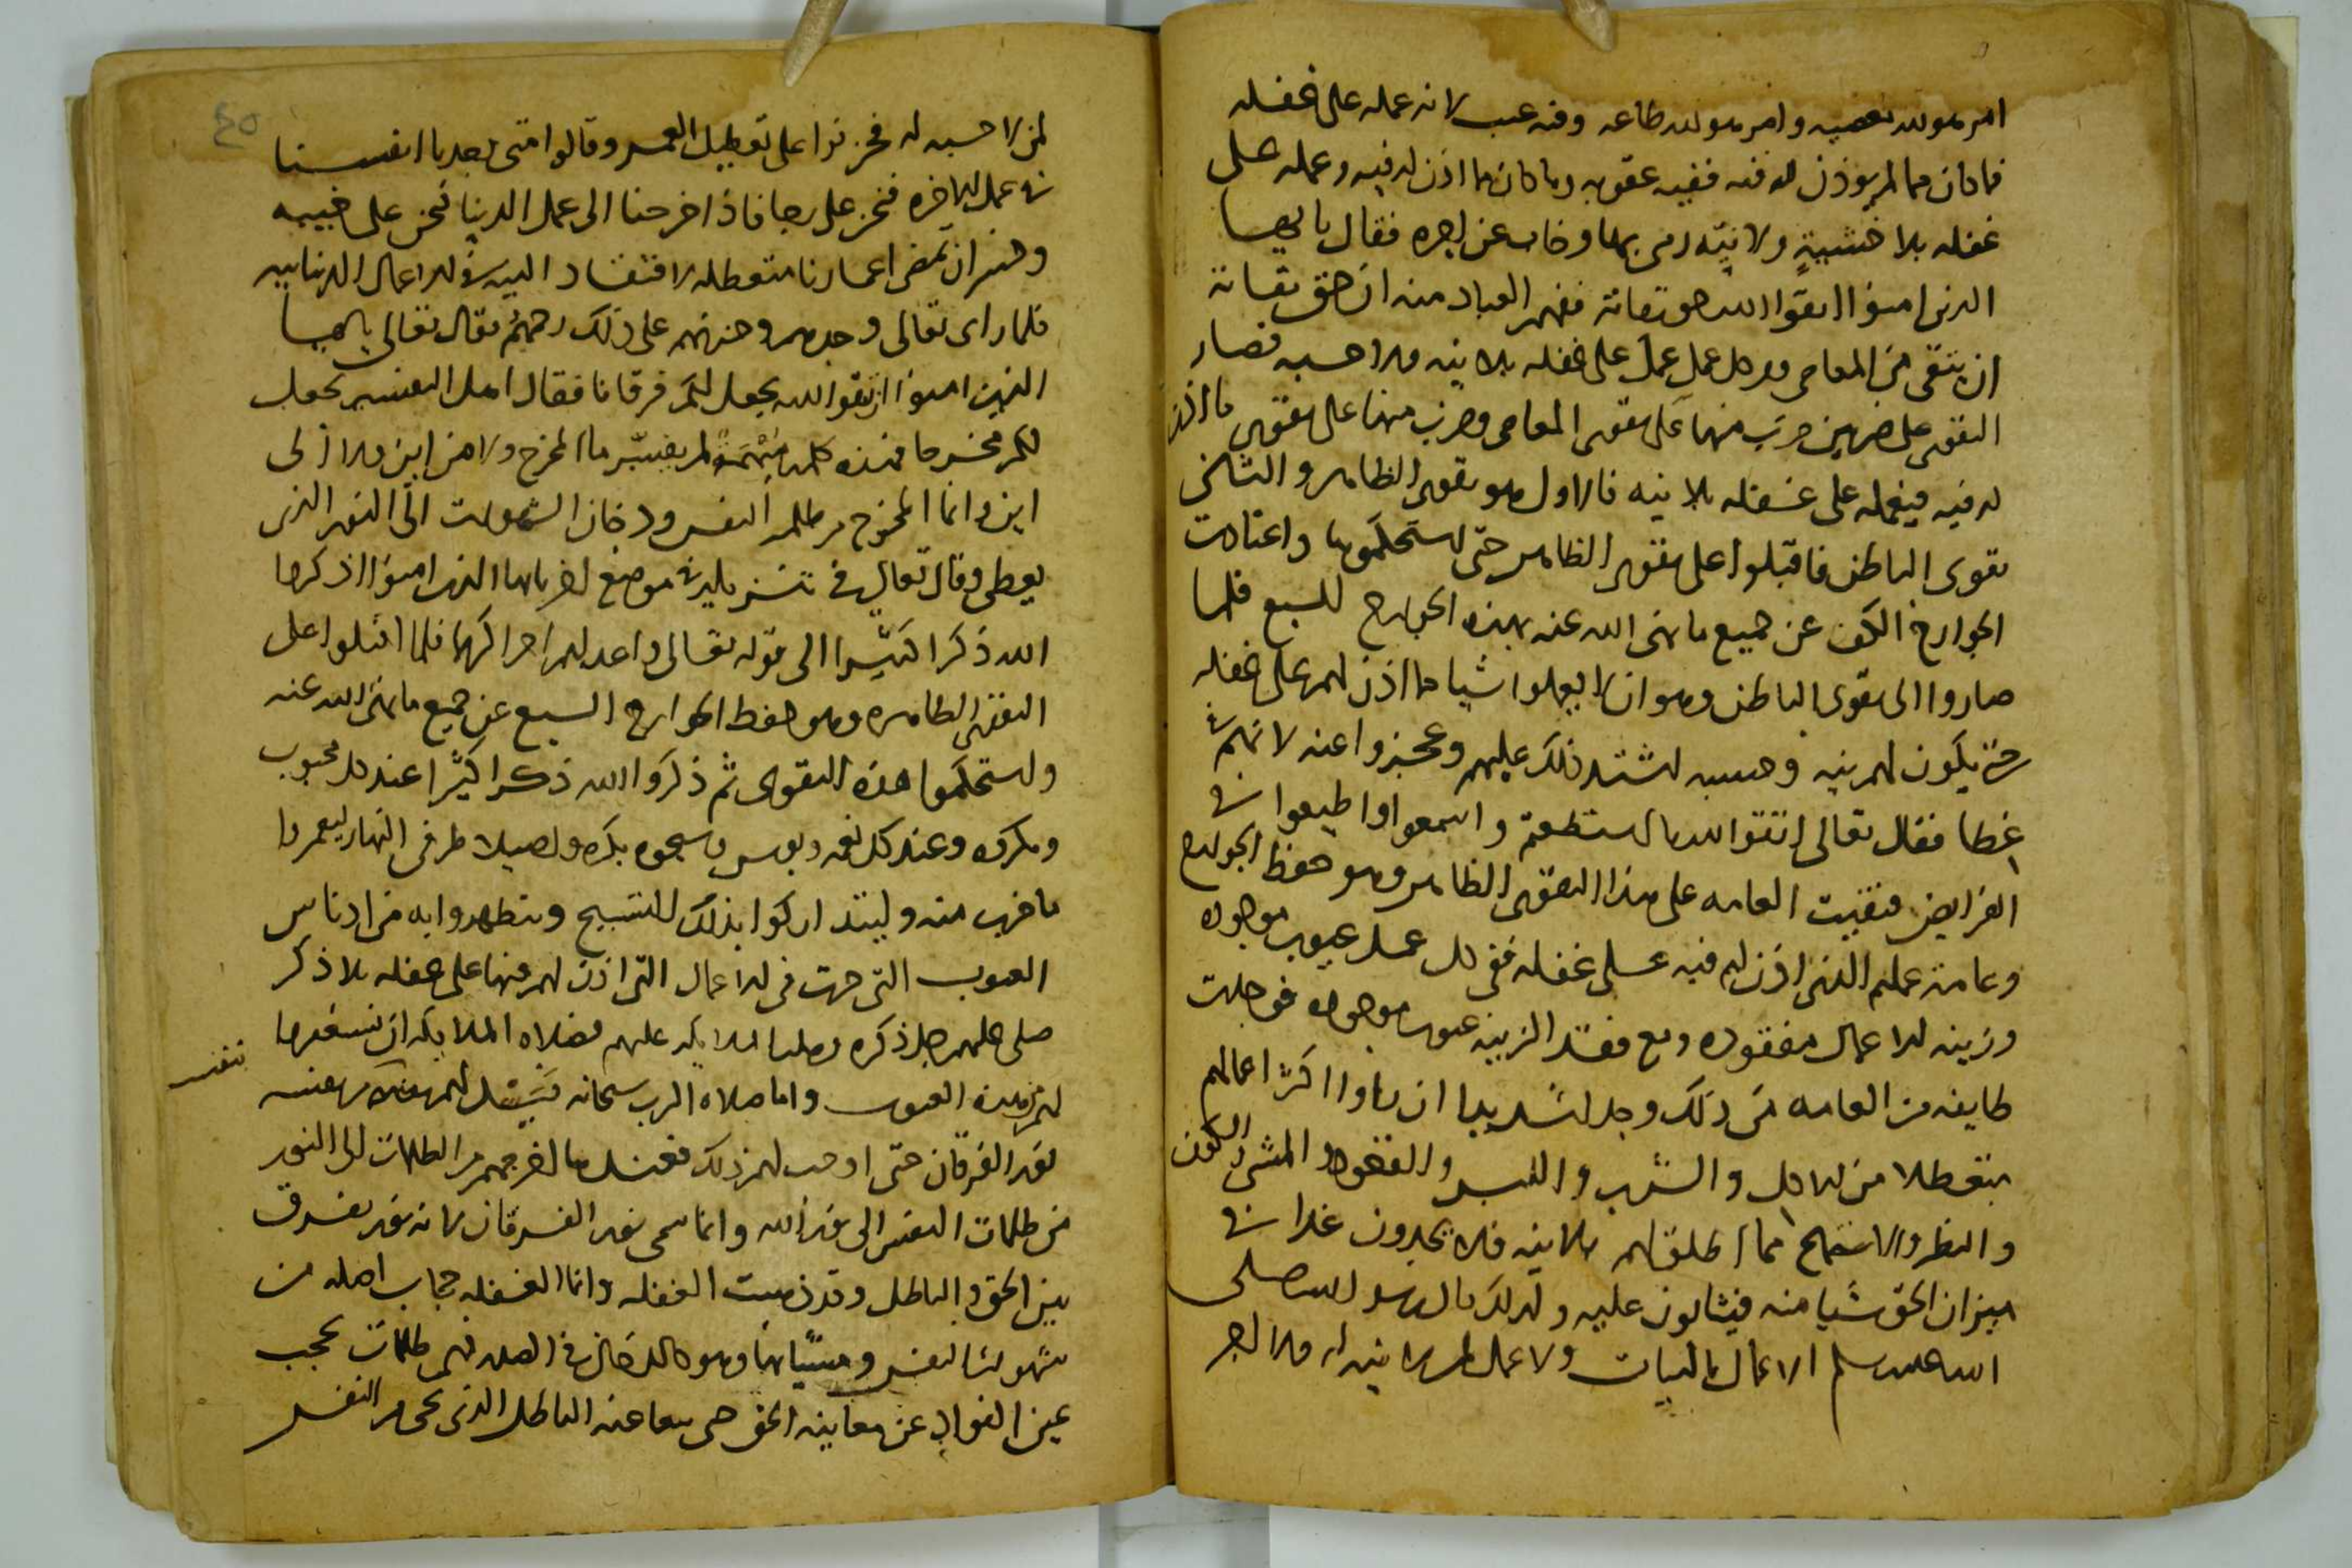 امر هو لله معصيه وامر هو لله طاعه وفيه عيب لانه عمله على غفله
فما كان مما لم يوذن له فيه ففيه عقوبه وما كان مما اذن له فيه وعمله على
غفله بلا خشيةٍ ولا نيّه رمى بها وخاب عن اجره فقال يا ايها
الذين امنوا اتقوا الله حق تقاته ففهم العباد منه ان حق تقاته
ان يتقى من المعاصى وكل عمل عمل على غفله بلا نيه ولا حسبه فصار
التقوى على ضربين ضرب منهما على تقوى المعاصى وضرب منهما على تقوى ما اذن
له فيه فيعمله على غفله بلا نيه فالاول هو تقوى الظاهر والثانى
تقوى الباطن فاقبلوا على تقوى الظاهر حتى استحكموها واعتادت
الجوارح الكف عن جميع ما نهى الله عنه بهذه الجوارح السبع فلما
صاروا الى تقوى الباطن وهو ان لا يعملوا شيا مما اذن لهم على غفله
حتى يكون لهم نيه وحسبه اشتد ذلك عليهم وعجزوا عنه لانهم فى
غطا فقال تعالى اتقوا الله ما استطعتم واسمعوا واطيعوا فى
الفرايض فبقيت العامه على هذا التقوى الظاهر وهو حفظ الجوارح
وعامة عملهم الذى اذن لهم فيه على غفله ففى كل عمل عيوب موجوده
وزينه الاعمال مفقوده ومع فقد الزينه عيوب موجوده فوجلت
طايفه من العامه من ذلك وجلا شديدا ان راوا اكثر اعمالهم
متعطلا من الاكل والشرب واللبس والقعود والمشى والكون
والنظر والاستماع مما اطلق لهم بلا نيه فلا يجدون غدا فى
ميزان الحق شيا منه فيثابون عليه ولذلك قال رسول الله صلى
الله عليه وسلم الاعمال بالنيات ولا عمل لمن لا نيه له ولا اجر
لمن لا حسبه له فحزنوا على تعطيل العمر وقالوا متى نجد يا انفسنا
فى عمل الاخره فنحن على رجا فاذا خرجنا الى عمل الدنيا فنحن على خيبه
وخسران تمضى اعمارنا متعطله لافتقاد النيه فى الاعمال الدنياييه
فلما راى تعالى وجدهم وحزنهم على ذلك رحمهم فقال تعالى يا ايها
الذين امنوا ان تتقوا الله يجعل لكم فرقانا فقال اهل التفسير يجعل
لكم مخرجا فهذه كلمه مبهمة لم يفسّر ما المخرج ولا من اين ولا الى
اين وانما المخرج من ظلمه النفس ودخان الشهوات الى النور الذى
يعطى وقال تعالى فى تنزيله فى موضع اخر يا ايها الذين امنوا اذكروا
الله ذكرا كثيرا الى قوله تعالى واعد لهم اجرا كريما فلما اقبلوا على
التقوى الظاهره وهو حفظ الجوارح السبع عن جميع ما نهى الله عنه
واستحكموا هذه التقوى ثم ذكروا الله ذكرا كثيرا عند كل محبوب
ومكروه وعند كل نعمه وبوس وسبحوه بكره واصيلا طرفى النهار ليعمروا
ما خرب منه وليتداركوا بذلك التسبيح وتطهروا به من ادناس
العيوب التى جرت فى الاعمال التى اذن لهم فيها على غفله بلا ذكر
صلى عليهم جل ذكره وصلت الملايكه عليهم فصلاه الملايكه ان تستغفر
لهم هذه العيوب واما صلاه الرب سبحانه
نور الفرقان حتى اوجب لهم ذلك فعندها اخرجهم من الظلمات الى النور
من ظلمات النفس الى نور الله وانما سمى نور الفرقان لانه نور يفرق
بين الحق والباطل وقد ذهبت الغفله وانما الغفله حجاب اصله من
شهوات النفس وهو كالدخان فى الصدر فهى ظلمات تحجب
عين الفواد عن معاينه الحق الباطل الذى من النفس